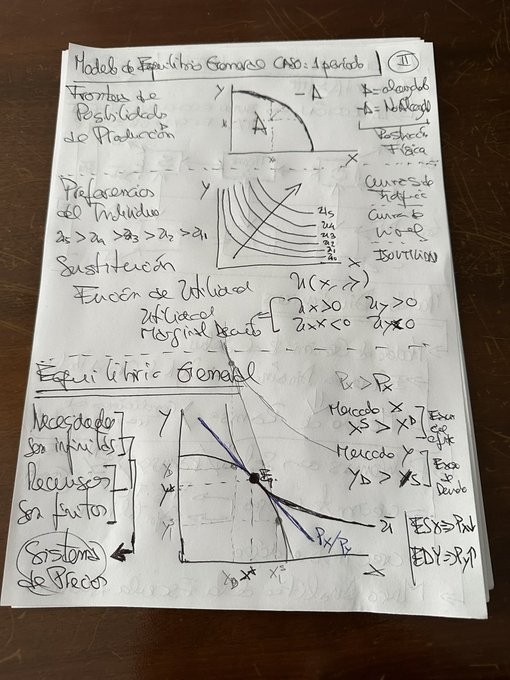 Modelo de Equilibrio General CASO: 1 periodo
II
Frontera de
Posibilidades
de Producción
Y
- A
A
X
A = alcanzable
-A = No Alcanzable
Restricción
Física
Preferencias
del Individuo
u5 > u4 > u3 > u2 > u1
Y
u5
u4
u3
u2
u1
u0
X
Curvas de
Curvas de
nivel
Sustitución
Función de Utilidad
u(x, y)
Utilidad
Marginal Decreciente
ux>0 uy>0
uxx<0
Equilibrio General
Necesidades
son infinitas
Recursos
son finitos
Sistema
de Precios
Y
E
u
Px/Py
XD X* XS
X
Mercado X
XS > XD
Mercado Y
YD > YS
ESX⇒Px↓
EDY⇒Py↑